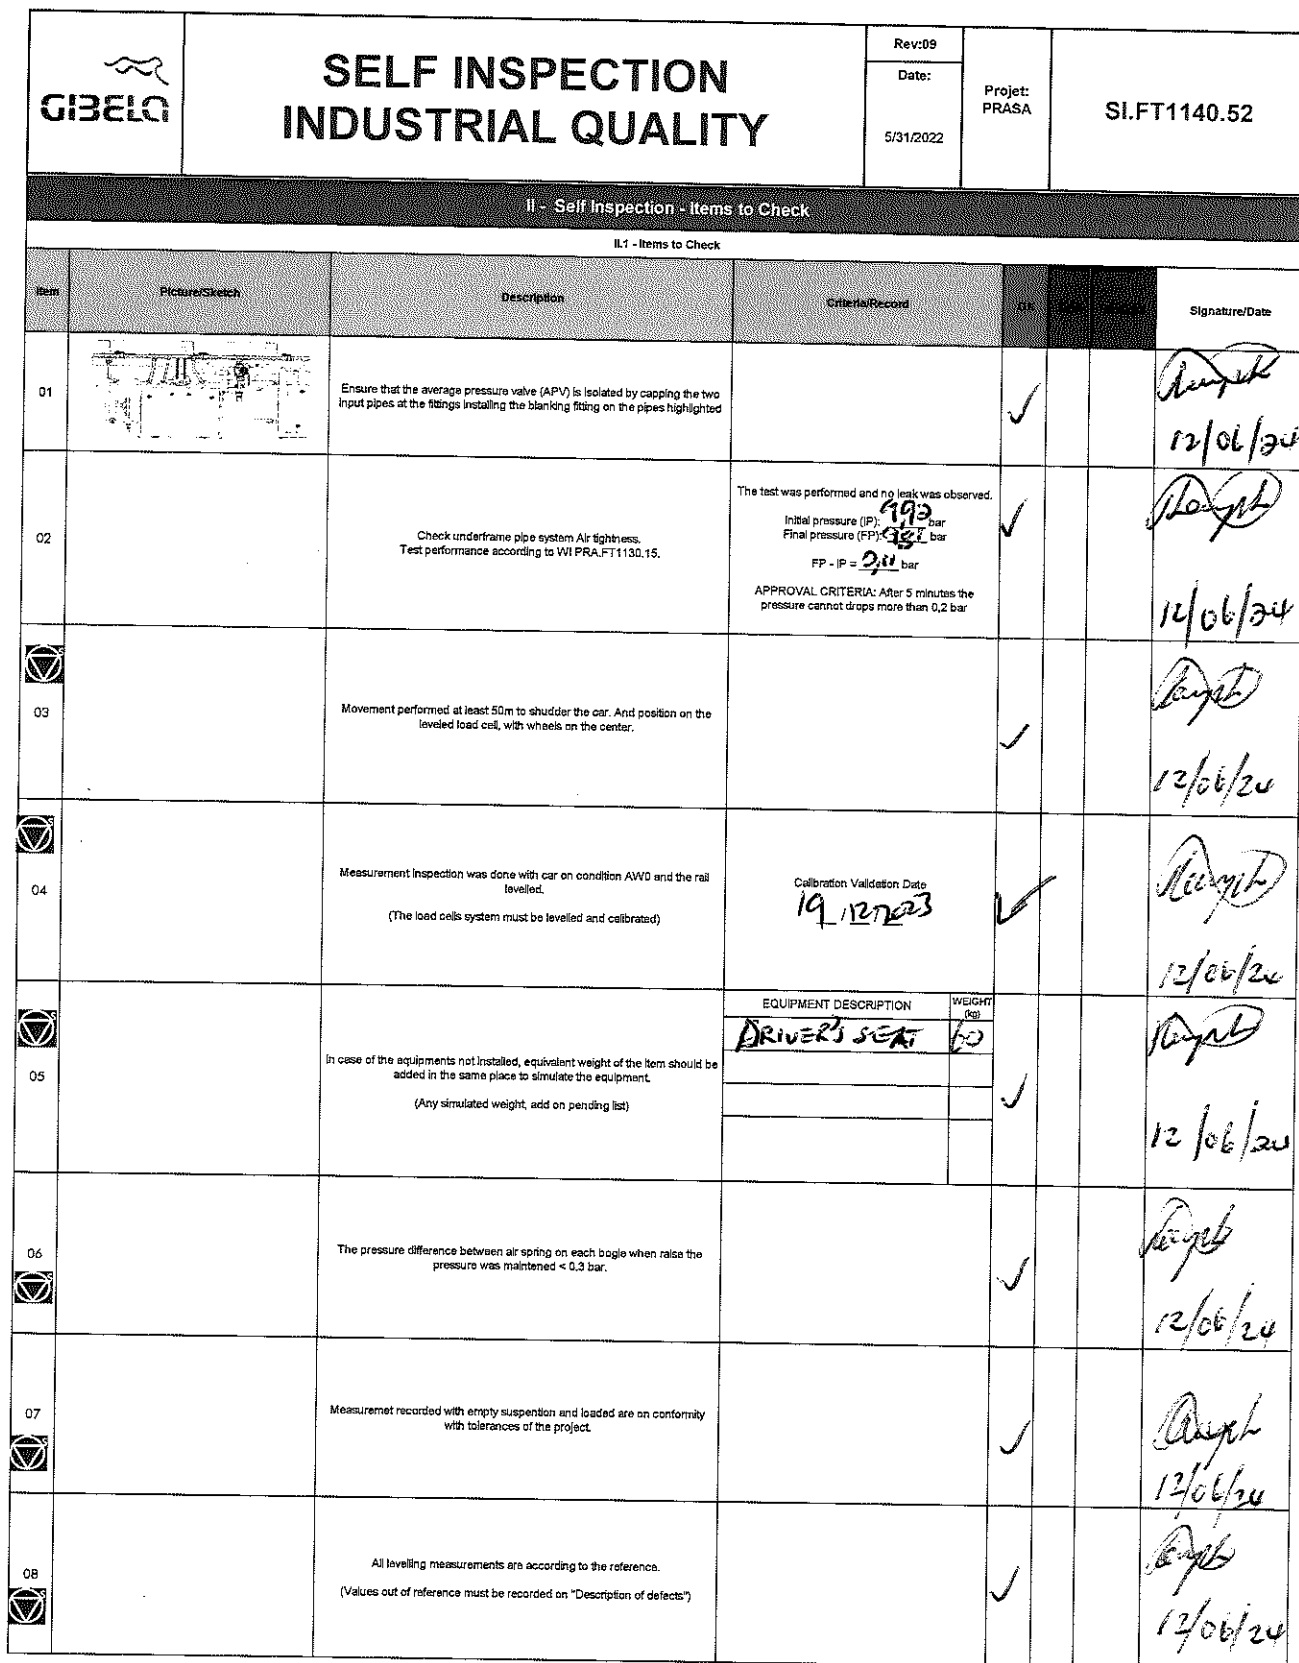 GIBELA
SELF INSPECTION
INDUSTRIAL QUALITY
Rev:09
Date:
5/31/2022
Projet:
PRASA
SI.FT1140.52
II - Self Inspection - Items to Check
II.1 - Items to Check
Item
Picture/Sketch
Description
Criteria/Record
OK
Signature/Date
01
Ensure that the average pressure valve (APV) is isolated by capping the two
input pipes at the fittings installing the blanking fitting on the pipes highlighted
12/06/24
02
Check underframe pipe system Air tightness.
Test performance according to WI PRA.FT1130.15.
The test was performed and no leak was observed.
Initial pressure (IP): 9,92 bar
Final pressure (FP): bar
FP - IP = 0,11 bar
APPROVAL CRITERIA: After 5 minutes the
pressure cannot drops more than 0,2 bar
12/06/24
03
Movement performed at least 50m to shudder the car. And position on the
leveled load cell, with wheels on the center.
12/06/24
04
Measurement inspection was done with car on condition AW0 and the rail
levelled.
(The load cells system must be levelled and calibrated)
Calibration Validation Date
19/12/2023
12/06/24
05
In case of the equipments not installed, equivalent weight of the item should be
added in the same place to simulate the equipment.
(Any simulated weight, add on pending list)
EQUIPMENT DESCRIPTION
WEIGHT
(kg)
DRIVER'S SEAT 60
12/06/24
06
The pressure difference between air spring on each bogie when raise the
pressure was maintened < 0,3 bar.
12/06/24
07
Measuremet recorded with empty suspention and loaded are on conformity
with tolerances of the project.
12/06/24
08
All levelling measurements are according to the reference.
(Values out of reference must be recorded on "Description of defects")
12/06/24